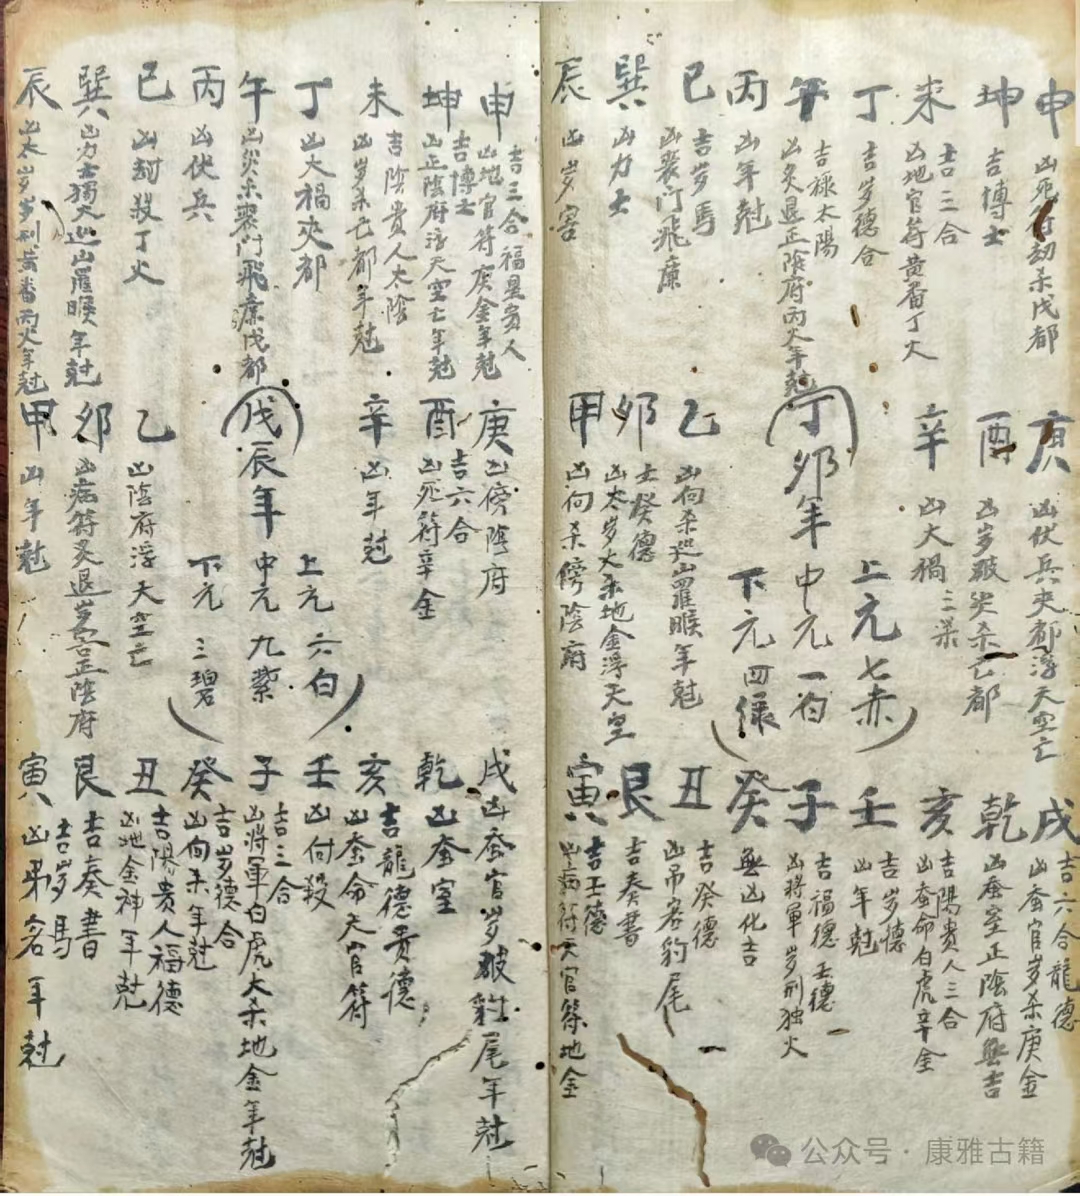 申 凶死符劫杀戊都
坤 吉博士
未 吉三合
凶地官符黄番丁火
丁 吉岁德合
午 吉禄太陽
凶炙退正陰府丙火年尅
丙 凶年尅
巳 吉岁馬
凶喪门飛廉
巽 凶力士
辰 凶岁客
庚 凶伏兵夹都浮天空亡
酉 凶岁破災杀亡都
辛 凶大禍
丁卯年
上元七赤
中元一白
下元四绿
乙 凶向杀巡山羅睺年尅
卯 吉癸德
凶太岁大杀地金浮天空
甲 凶向杀傍陰府
戌 吉六合龍德
凶蚕官岁杀庚金
乾 凶蚕室正陰府無吉
亥 吉陽贵人三合
凶蚕命白虎辛金
壬 吉岁德
凶年尅
子 吉福德壬德
凶将軍岁刑独火
癸 無凶化吉
丑 吉癸德
凶吊客豹尾
艮 吉奏書
寅 吉壬德
凶病符天官符地金
申 吉三合福星贵人
凶地官符庚金年尅
坤 吉博士
凶正陰府浮天空亡年尅
未 吉陰贵人太陰
凶岁杀亡都年尅
丁 凶大禍夾都
午 凶災杀喪门飛廉戊都
丙 凶伏兵
巳 凶刧殺丁火
巽 凶力士獨火巡山羅睺年尅
辰 凶太岁岁刑黄番丙火年尅
庚 凶傍陰府
酉 吉六合
凶死符辛金
辛 凶年尅
戊辰年
上元六白
中元九紫
下元三碧
乙 凶陰府浮天空亡
卯 凶病符炙退岁客正陰府
甲 凶年尅
戌 凶蚕官岁破豹尾年尅
乾 凶蚕室
亥 吉龍德贵德
凶蚕命天官符
壬 凶付殺
子 吉三合
凶将軍白虎大杀地金年尅
癸 吉岁德合
凶向杀年尅
丑 吉陽贵人福德
凶地金神年尅
艮 吉奏書
寅 吉岁馬
凶吊客年尅
公众号·康雅古籍